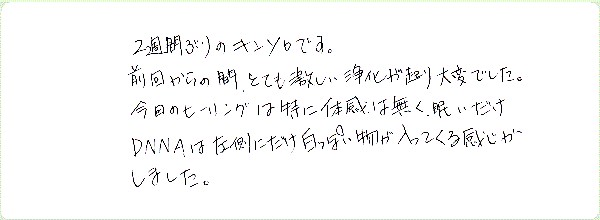 2週間ぶりのキンソロです。
前回からの間、とても激しい浄化が起り大変でした。
今回のヒーリングは特に体感は無く、眠いだけ
DNNAは左側にだけ白っぽい物が入ってくる感じが
しました。